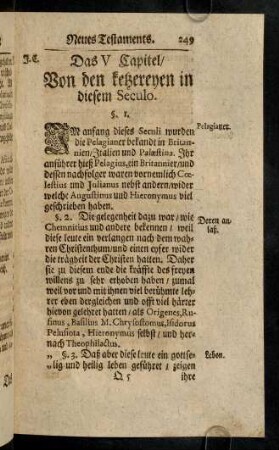 Neues Testaments. 249
J. C. Das V Capitel/
Von den ketzereyen in
diesem Seculo.
§. 1.
IM anfang dieses Seculi wurden Pelagianer.
die Pelagianer bekandt in Britan-
nien/Italien und Palæstina. Ihr
anführer hieß Pelagius, ein Britannier/und
dessen nachfolger waren vornemlich Cœ-
lestius und Julianus nebst andern/wider
welche Augustinus und Hieronymus viel
geschrieben haben.
§. 2. Die gelegenheit dazu war/wie Deren an-
Chemnitius und andere bekennen/ weil laß.
diese leute ein verlangen nach dem wah-
ren Christenthum/und einen eyfer wider
die trägheit der Christen hatten. Daher
sie zu diesem ende die kräffte des freyen
willens zu sehr erhoben haben/ zumal
weil vor und mit ihnen viel berühmte leh-
rer eben dergleichen und offt viel härter
hievon gelehret hatten/als Origenes, Ru-
finus, Basilius M. Chrysostomus, Isidorus
Pelusiota, Hieronymus selbst/ und her-
nach Theophilactus.
„ §. 3. Daß aber diese leute ein gottse- Leben.
„lig und heilig leben geführet/ zeigen
Q 5 ihre